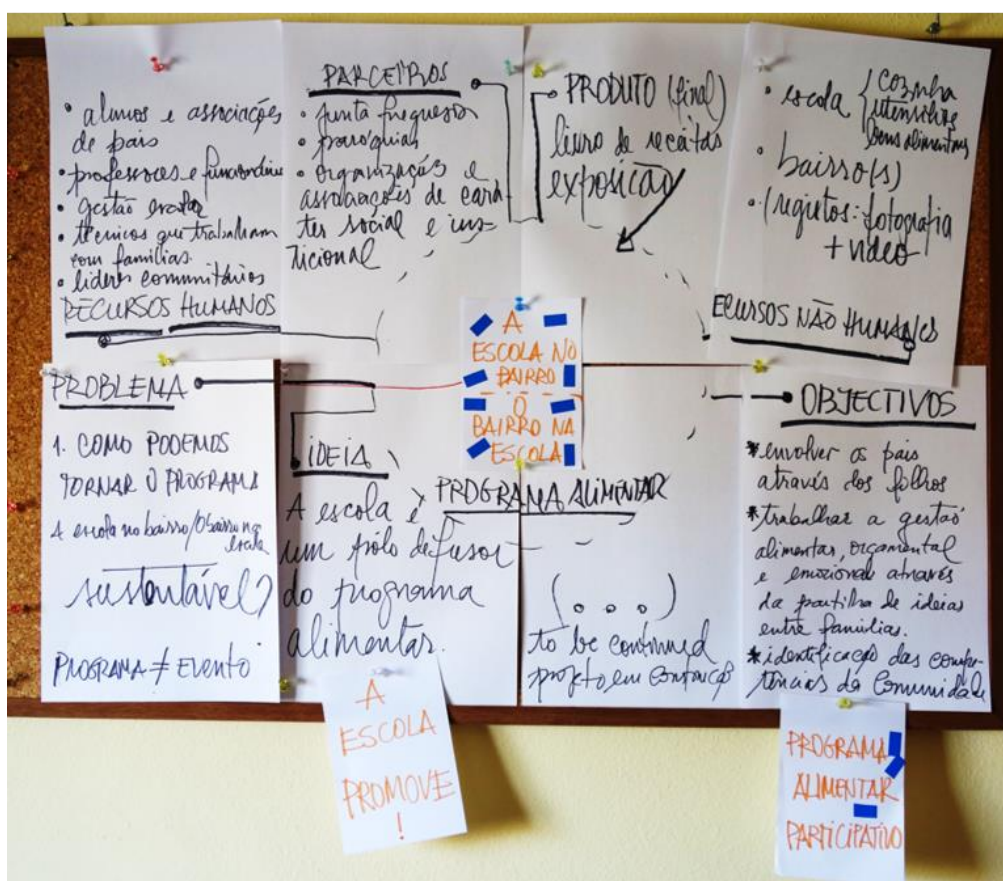 • alunos e associações
de pais
• professores e funcionários
• gestão escolar
• técnicos que trabalham
com famílias.
• líderes comunitários
RECURSOS HUMANOS
PARCEIROS
• junta freguesia
• paróquias
• organizações e
associações de cará
ter social e ins-
ticional
• PRODUTO (final)
livro de receitas
exposição
• escola { cozinha
utensílios
bens alimentares
• bairro(s)
• (registos: fotografia
+ video
ECURSOS NÃO HUMANOS
A
ESCOLA NO
BAIRRO
O
BAIRRO NA
ESCOLA
PROBLEMA
1. COMO PODEMOS
TORNAR O PROGRAMA
A escola no bairro/O bairro na
escola
sustentável?
PROGRAMA ≠ EVENTO
IDEIA
A escola é
um pólo difusor
do programa
alimentar.
PROGRAMA ALIMENTAR
(...)
to be continued
projeto em construção
OBJECTIVOS
*envolver os pais
através dos filhos
*trabalhar a gestão
alimentar, orçamental
e emocional através
da partilha de ideias
entre famílias.
*identificação das compe-
tências da Comunidade
A
ESCOLA
PROMOVE
!
PROGRAMA
ALIMENTAR
PARTICIPATIVO